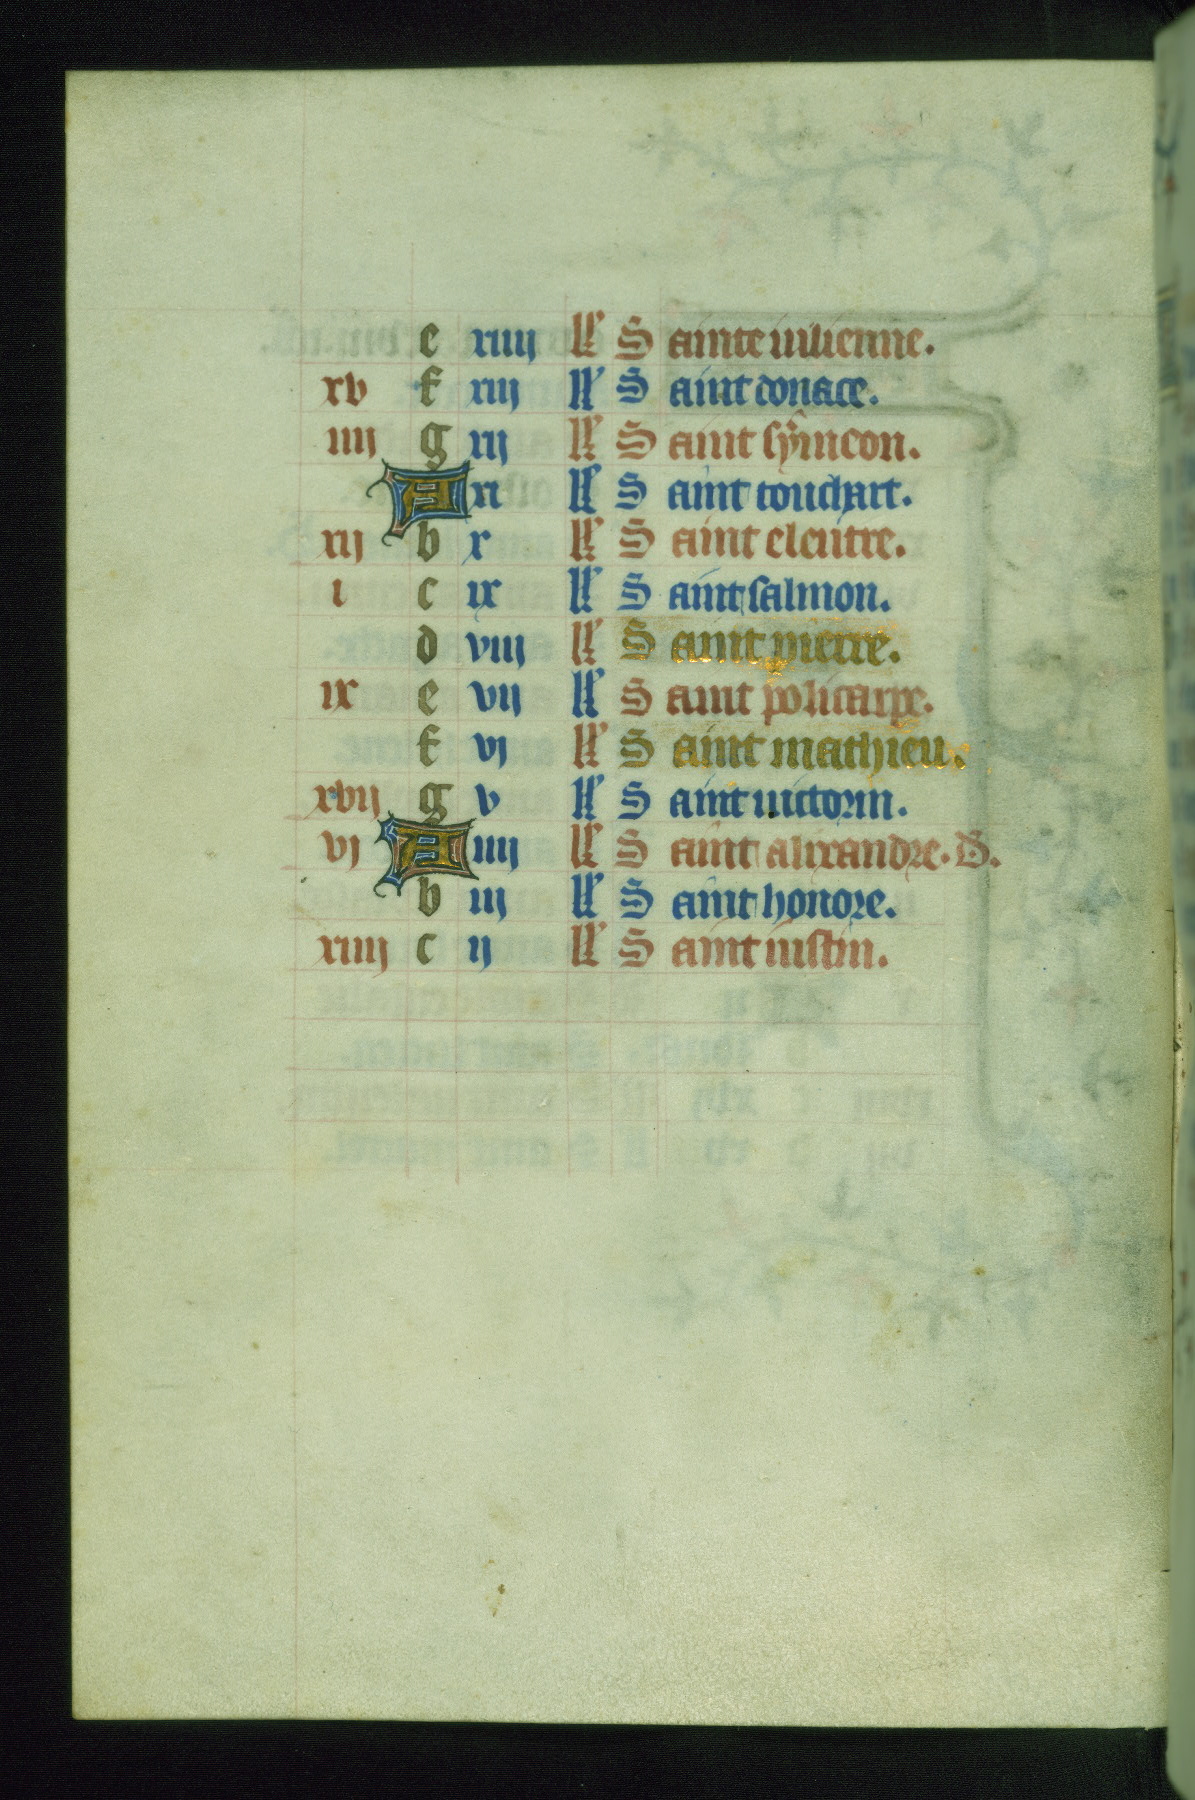 e xiiij kl' Sainte iulienne.
xv f xiij kl' Saint donace.
iiij g xij kl' Saint symeon.
A xi kl' Saint couchart.
xij b x kl' Saint eleutre.
i c ix kl' Saint salmon.
d viij kl' Saint pierre.
ix e vij kl' Saint policarpe.
f vj kl' Saint mathieu.
xvij g v kl' Saint uictorin.
vj A iiij kl' Saint alixandre.
b iij kl' Saint honore.
xiiij c ij kl' Saint iustin.